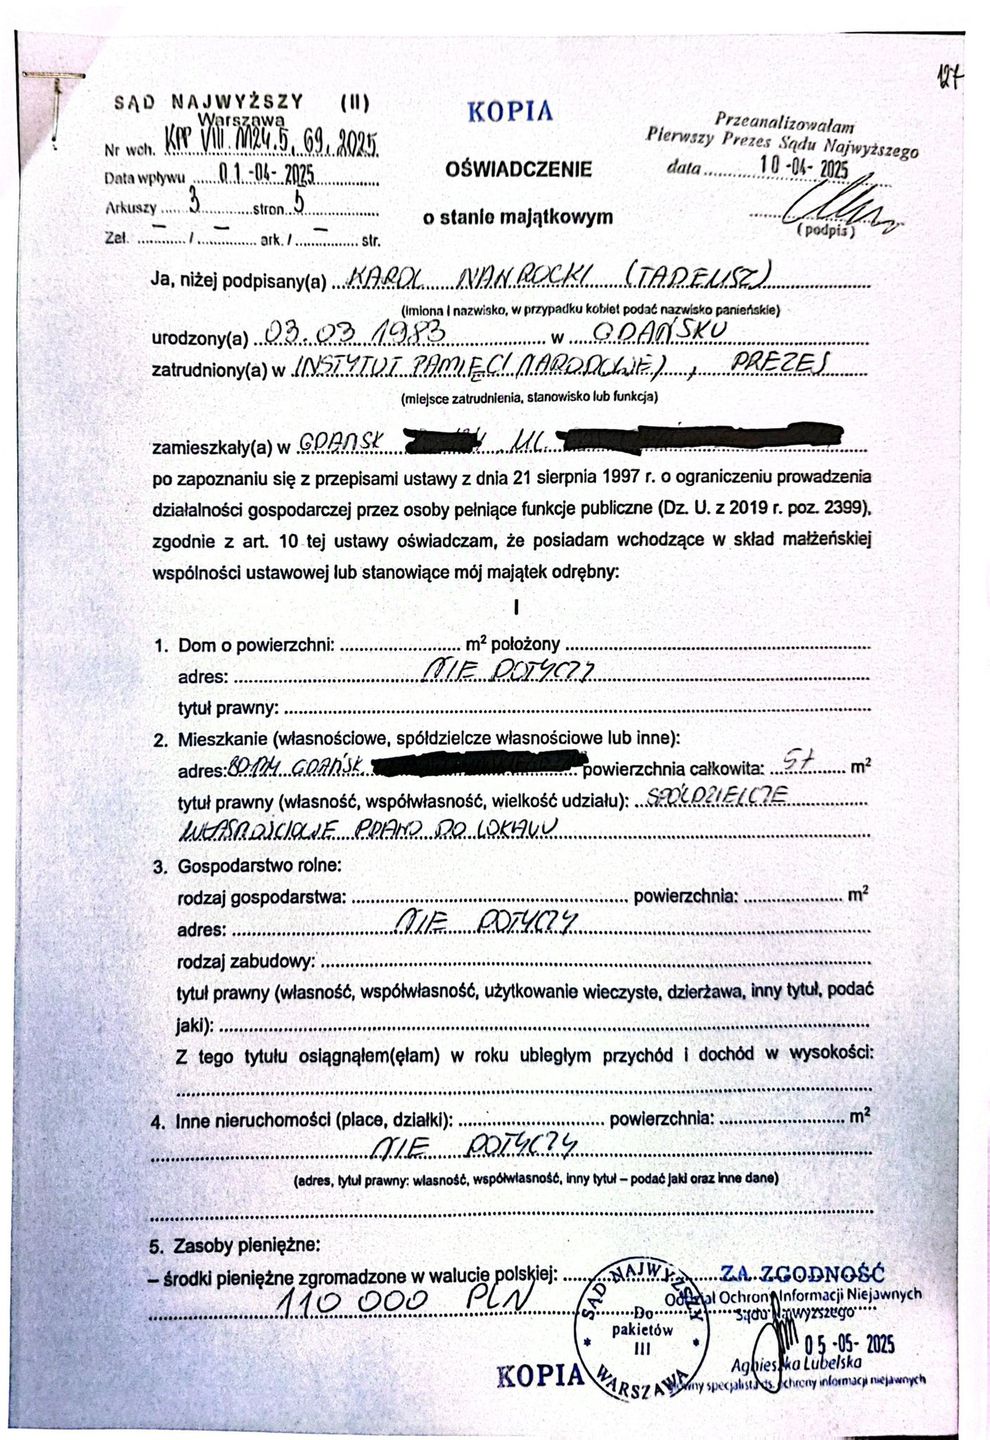 127
SĄD NAJWYŻSZY (II)
Warszawa
Nr wch. KPP VIII.M24.5.69.2025
Data wpływu 01-04-2025
Arkuszy 3 stron 5
Zał. – / – ark. / – str.
KOPIA
OŚWIADCZENIE
o stanie majątkowym
Przeanalizowałam
Pierwszy Prezes Sądu Najwyższego
data 10-04-2025
(podpis)
Ja, niżej podpisany(a) KAROL NAWROCKI (TADEUSZ)
(imiona i nazwisko, w przypadku kobiet podać nazwisko panieńskie)
urodzony(a) 03.03 1983 w GDAŃSKU
zatrudniony(a) w INSTYTUT PAMIĘCI NARODOWEJ, PREZES
(miejsce zatrudnienia, stanowisko lub funkcja)
zamieszkały(a) w GDAŃSK UL.
po zapoznaniu się z przepisami ustawy z dnia 21 sierpnia 1997 r. o ograniczeniu prowadzenia
działalności gospodarczej przez osoby pełniące funkcje publiczne (Dz. U. z 2019 r. poz. 2399),
zgodnie z art. 10 tej ustawy oświadczam, że posiadam wchodzące w skład małżeńskiej
wspólności ustawowej lub stanowiące mój majątek odrębny:
I
1. Dom o powierzchni: m² położony
adres: NIE DOTYCZY
tytuł prawny:
2. Mieszkanie (własnościowe, spółdzielcze własnościowe lub inne):
adres: 80174 GDAŃSK powierzchnia całkowita: 57 m²
tytuł prawny (własność, współwłasność, wielkość udziału): SPÓŁDZIELCZE
WŁASNOŚCIOWE PRAWO DO LOKALU
3. Gospodarstwo rolne:
rodzaj gospodarstwa: powierzchnia: m²
adres: NIE DOTYCZY
rodzaj zabudowy:
tytuł prawny (własność, współwłasność, użytkowanie wieczyste, dzierżawa, inny tytuł, podać
jaki):
Z tego tytułu osiągnąłem(ęłam) w roku ubiegłym przychód i dochód w wysokości:
4. Inne nieruchomości (place, działki): powierzchnia: m²
NIE DOTYCZY
(adres, tytuł prawny: własność, współwłasność, inny tytuł – podać jaki oraz inne dane)
5. Zasoby pieniężne:
– środki pieniężne zgromadzone w walucie polskiej:
110 000 PLN
SĄD NAJWYŻSZY
Do
pakietów
III
WARSZAWA
ZA ZGODNOŚĆ
Oddział Ochrony Informacji Niejawnych
Sądu Najwyższego
05-05-2025
Agnieszka Lubelska
główny specjalista ds. ochrony informacji niejawnych
KOPIA